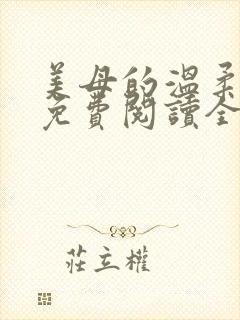 美母的溫柔
免費閱讀全
莊立權